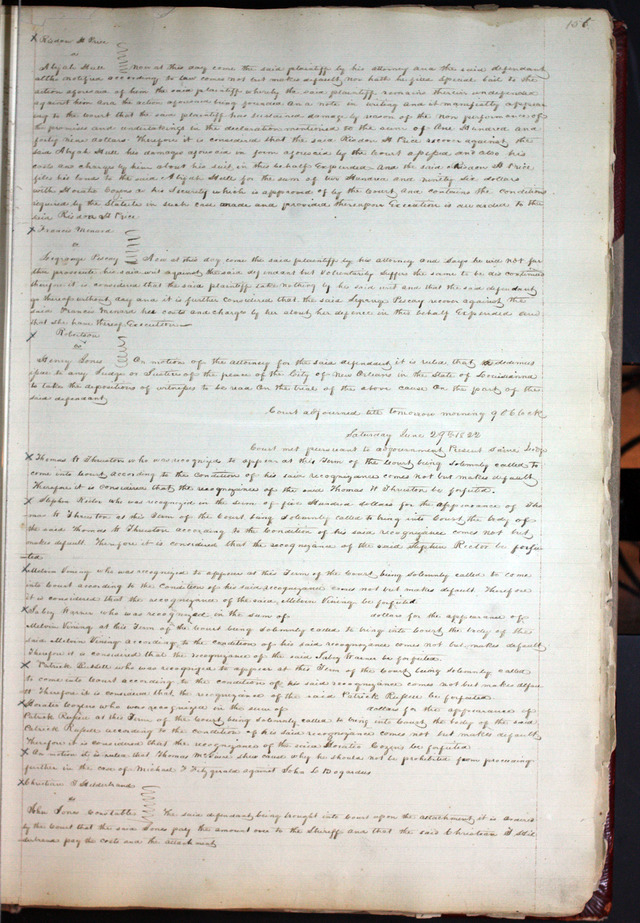 156
x Risdon H Price
vs
Abijah Hull Now at this day come the said plaintiff by his attorney and the said defendant
altho notified according to law comes not but makes default nor hath he filed special bail to the
action aforesaid of him the said plaintiff whereby the said plaintiff remains therein undefended
against him and the action aforesaid being founded on a note in writing and it manifestly appear
ing to the Court that the said plaintiff has sustained damage by reason of the non performance of
the promises and undertakings in the declaration mentioned to the sum of One Hundred and
forty nine dollars Therefore it is considered that the said Risdon H Price recover against the
said Abijah Hull his damages aforesaid in form aforesaid by the Court assessed and also his
costs and charges by him about his suit in this behalf Expended and the said Risdon H Price
files his bond to the said Abijah Hull for the sum of two Hundred and ninety six dollars
with Horatio Cozens as his Security which is approved of by the Court and contains the conditions
required by the Statute in such case made and provided thereupon Execution is awarded to the
said Risdon H Price
x Francis Menard
vs
Legrange Peccay Now at this day come the said plaintiff by his attorney and says he will not fur
ther prosecute his said suit against the said defendant but Voluntarily suffers the same to be discontinued
therefore it is considered that the said plaintiff take nothing by his said writ and that the said defendant
go thereof without day and it is further considered that the said Legrange Peccay recover against the
said Francis Menard her costs and charges by her about her defence in this behalf Expended and
that she have thereof Execution
x Robertson
vs
Henry Jones On motion of the attorney for the said defendant it is ruled that dedimus
opae to any Judge or Justice of the peace of the City of New Orleans in the State of Louisianna
to take the depositions of witnesses to be read on the trial of the above cause On the part of the
said defendant
Court adjourned till tomorrow morning 9 OClock
Saturday June 29th 1822
Court met persuant to adjournment Present same Judge
x Thomas W Thruston who was recognized to appear at this Term of the Court being Solemnly called to
come into Court according to the condition of his said recognizance comes not but makes default
Therefore it is considered that the recognizance of the said Thomas W Thruston be forfeited.
x Stephen Reeder who was recognized in the sum of five Hundred dollars for the appearance of Tho
mas W Thruston at this Term of the Court being Solemnly called to bring into Court the body of
the said Thomas W Thruston according to the Condition of his said recognizance comes not but
makes default Therefore it is considered that the recognizance of the said Stephen Reeder be forfei
ted
x Melvin Vining who was recognized to appear at this Term of the Court being Solemnly called to come
into Court according to the Condition of his said recognizance comes not but makes default Therefore
it is considered that the recognizance of the said Melvin Vining be forfeited
x Salvy Warner who was recognized in the sum of dollars for the appearance of
Melvin Vining at this Term of the Court being Solemnly called to bring into Court the body of the
said Melvin Vining according to the condition of his said recognizance comes not but makes default
Therefore it is considered that the recognizance of the said Salvy Warner be forfeited.
x Patrick Russell who was recognized to appear at this Term of the Court being Solemnly called
to come into Court according to the condition of his said recognizance comes not but makes defau
lt Therefore it is considered that the recognizance of the said Patrick Russell be forfeited
x Horatio Cozens who was recognized in the sum of dollars for the appearance of
Patrick Russell at this Term of the Court being Solemnly called to bring into Court the body of the said
Patrick Russell according to the condition of his said recognizance comes not but makes default
Therefore it is considered that the recognizance of the said Horatio Cozens be forfeited
x On motion it is ruled that Thomas McGuire shew cause why he should not be prohibited from proceeding
further in the case of Michael F Fitzgerald against John L Bogardus
x Christian P Hilderbrand
vs
John Jones Constable The said defendant being brought into Court upon the attachment it is awarded
by the Court that the said Jones pay the amount over to the Sheriff and that the said Christian P Hild
erbrand pay the costs and the attachment